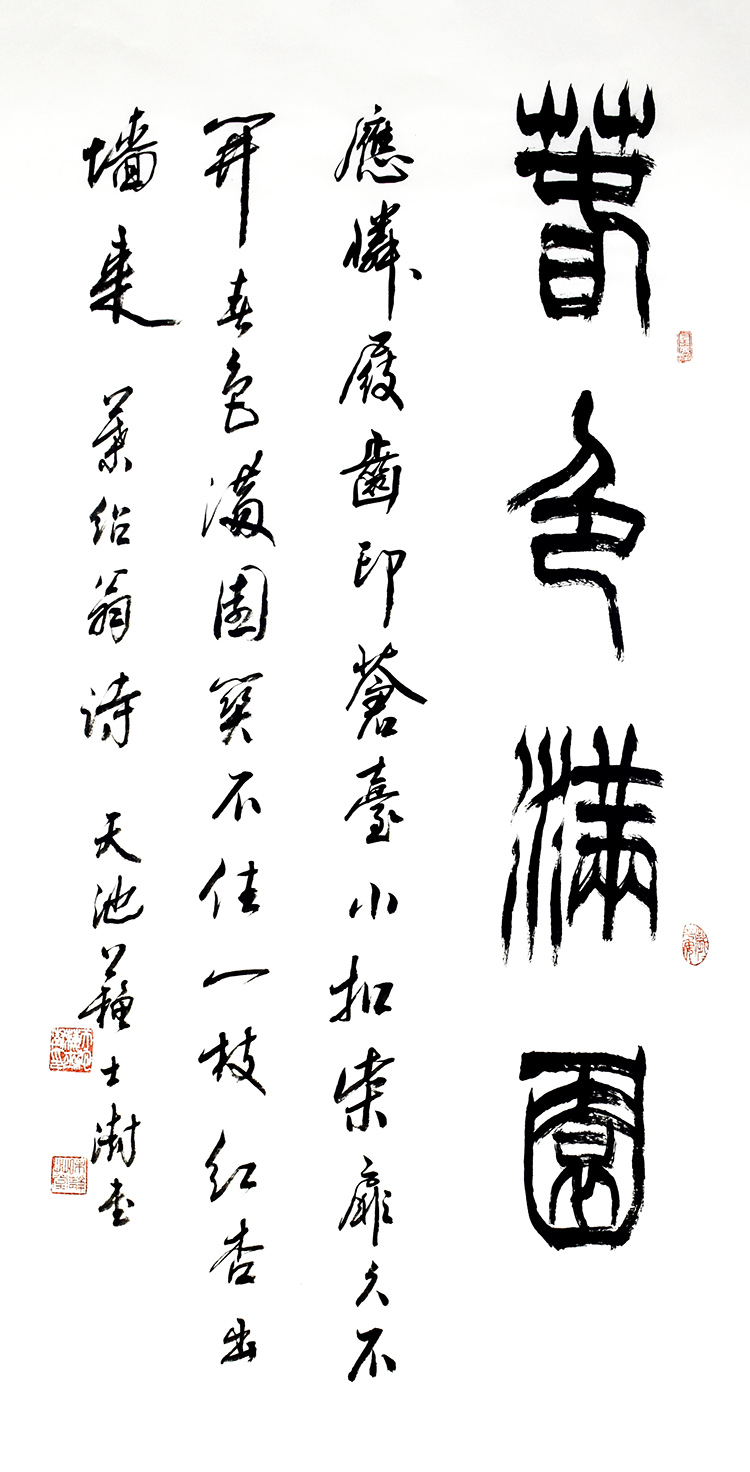 春色滿園
應憐屐齒印蒼臺小扣柴扉久不
開春色滿園關不住一枝紅杏出
墻來 葉紹翁詩 天池 蘇士澍書